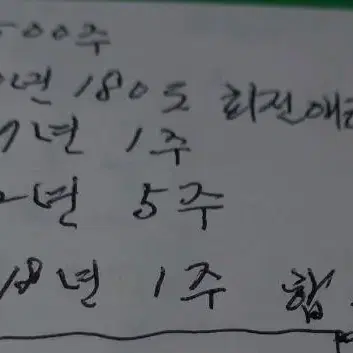 500주
년 180도 회전
7년 1주
2년 5주
18년 1주 합